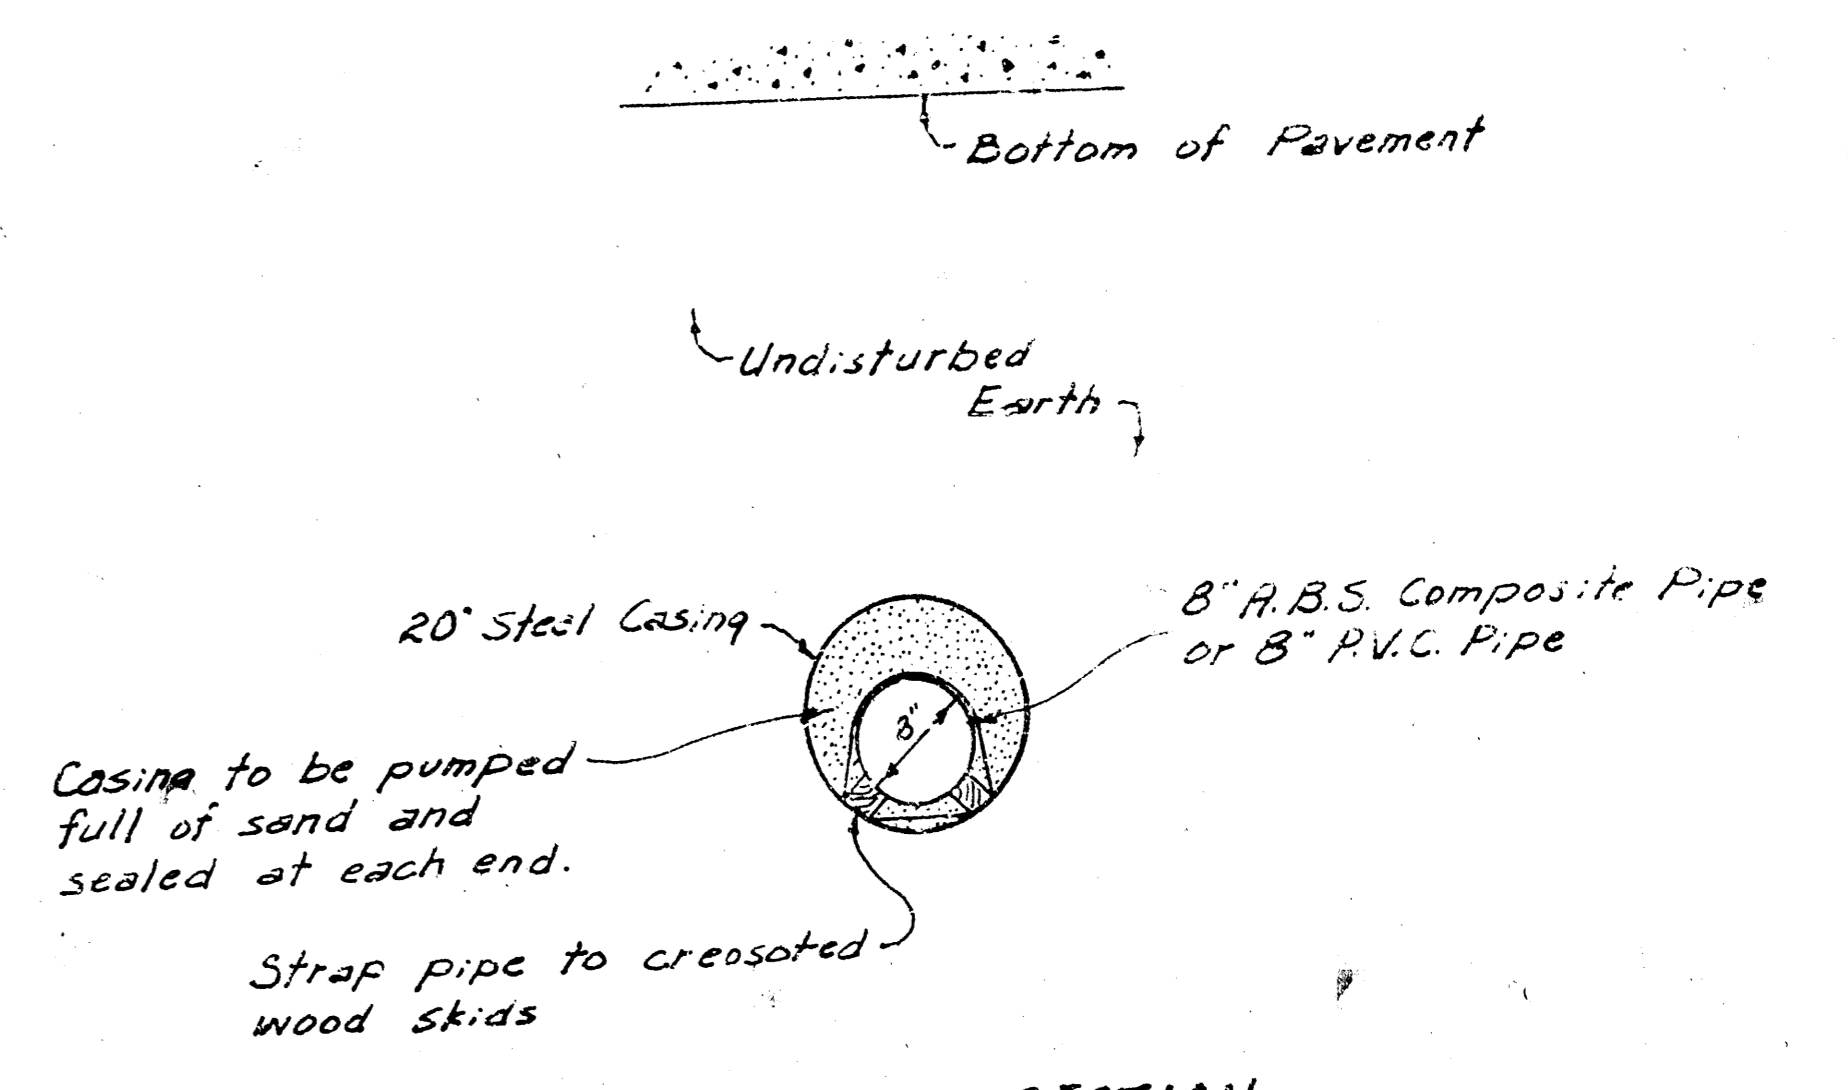 Bottom of Pavement
Undisturbed
Earth
20" Steel Casing
8" A.B.S. Composite Pipe
or 8" P.V.C. Pipe
8"
Casing to be pumped
full of sand and
sealed at each end.
Strap pipe to creosoted
wood skids